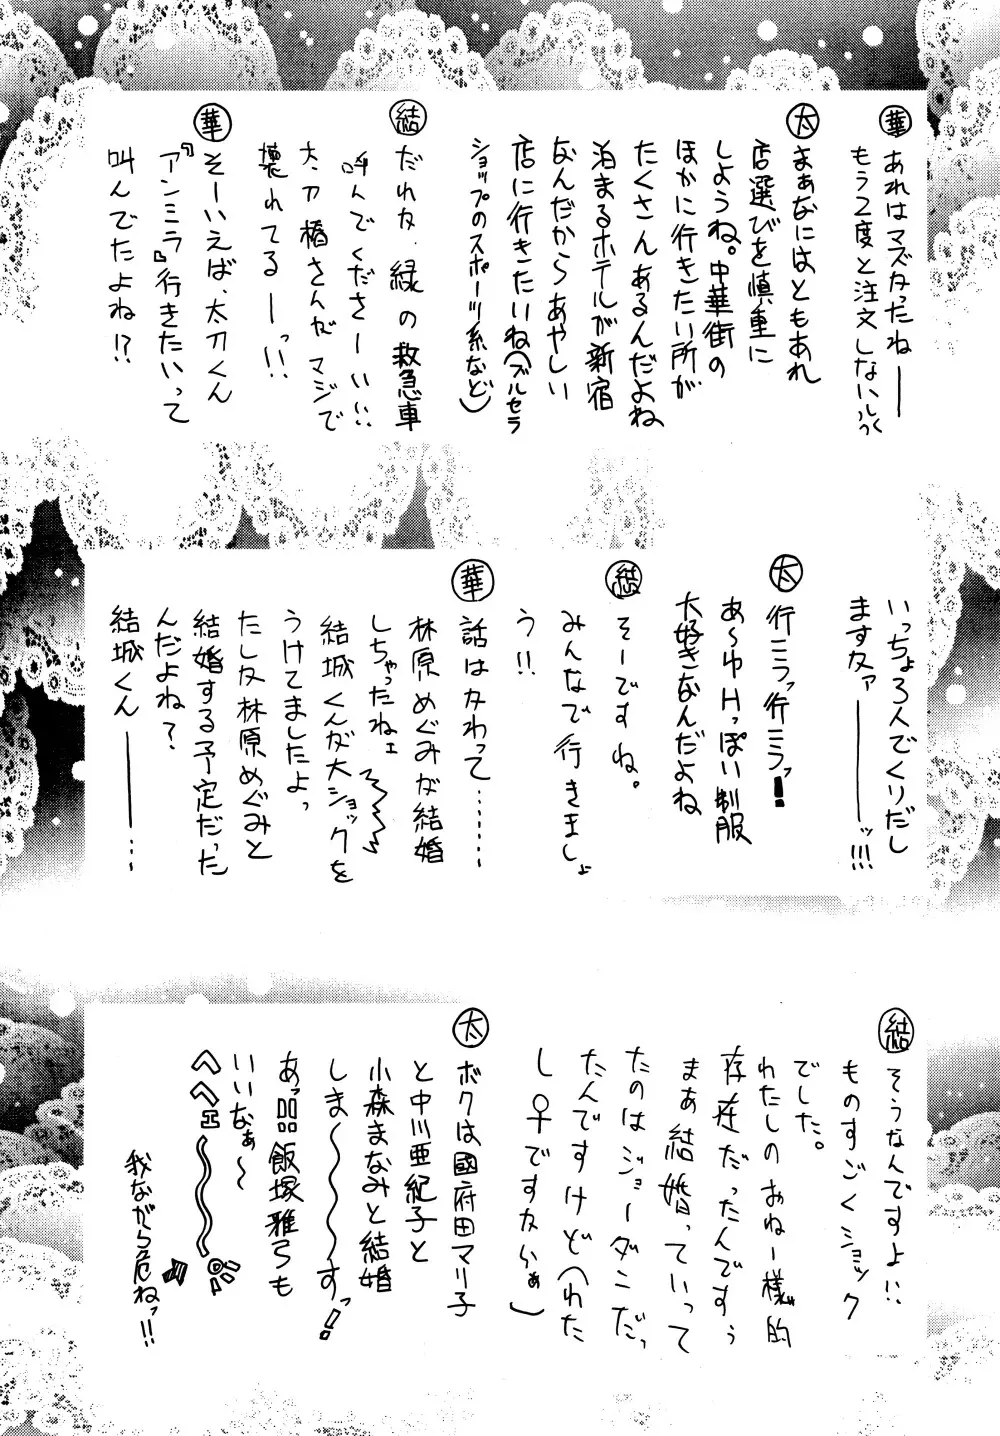 華 あれはマズかったね———
もう2度と注文しないルック
太 まぁなにはともあれ
店選びを慎重に
しようね。中華街の
ほかに行きたい所が
たくさんあるんだよね
泊まるホテルが新宿
なんだからあやしい
店に行きたいね(ブルセラ
ショップのスポーツ系など)
結 だれか、緑の救急車
呼んでくださーいい!!
太刀椿さんが マジで
壊れてるーっ!!
華 そーいえば、太刀くん
『アンミラ』行きたいって
叫んでたよね!?
いっちょろ人でくりだし
ますかァ————ッ!!!
太 行こうっ行こうッ!
あ〜ゆHっぽい制服
大好きなんだよね
結 そーですね。
みんなで行きましょ
う!!
華 話はかわって……
林原めぐみが結婚
しちゃったねェ
結城くんが大ショックを
うけてましたよっ
たしか林原めぐみと
結婚する予定だった
んだよね?
結城くん————…
結 そうなんですよ!!
ものすごくショック
でした。
わたしのおねー様的
存在だったんですぅ
まぁ結婚っていって
たのはジョーダンだっ
たんですけど(わた
し♀ですからぁ)
太 ボクは國府田マリ子
と中川亜紀子と
小森まなみと結婚
しま〜〜〜すっ!
あっ!!飯塚雅弓も
いいなぁ〜
ヘヘェ〜〜〜
我ながら危ねっ!!